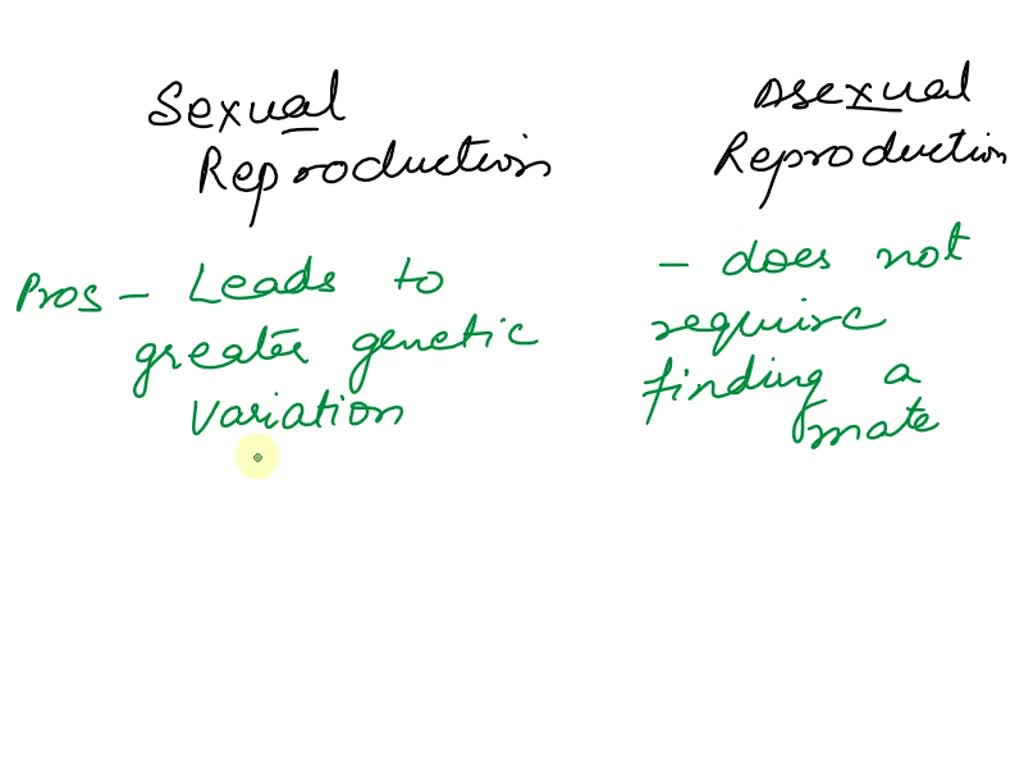 Sexual
Reproduction
Asexual
Reproduction
Pros - Leads to
greater genetic
variation
- does not
require
finding a
mate